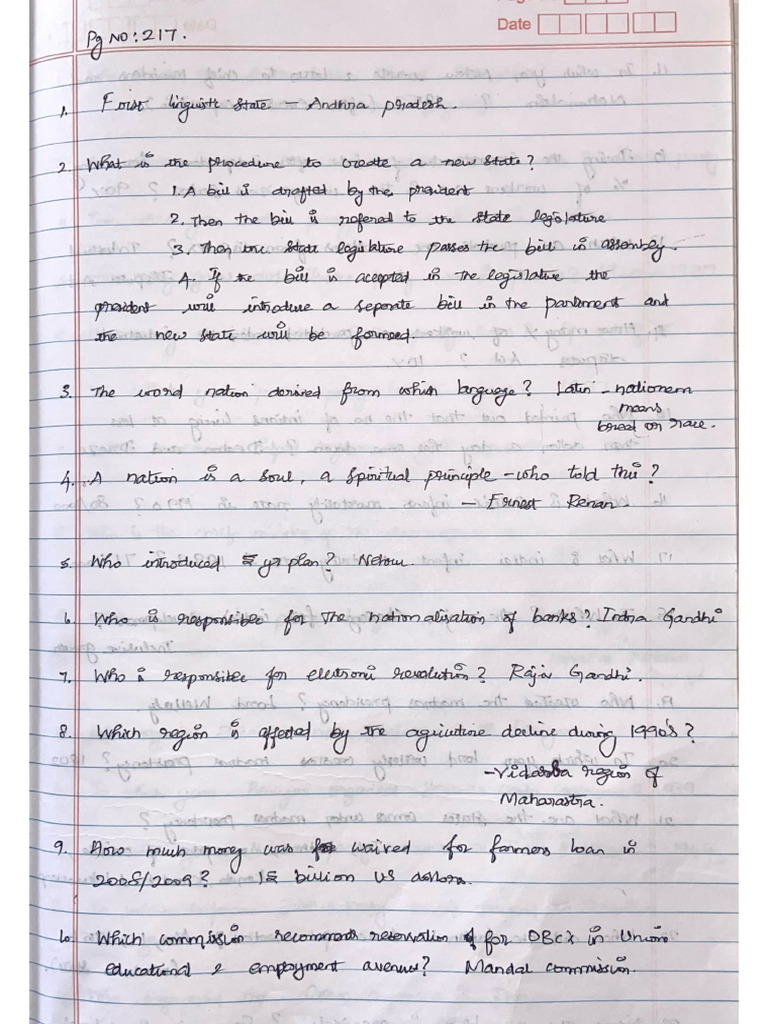 Date
Pg No: 217.
1. First linguistic state - Andhra pradesh.
2. What is the procedure to create a new state?
1. A bill is drafted by the president
2. Then the bill is refered to the state legislature
3. Then the state legislature passes the bill in assembly.
4. If the bill is accepted in the legislative the
president will introduce a seperate bill in the parliment and
the new state will be formed.
3. The word nation derived from which language? Latin - nationem
means
breed or race.
4. A nation is a soul, a spiritual principle - who told this?
- Ernest Renan.
5. Who introduced 5 yr plan? Nehru.
6. Who is responsible for the nationalisation of banks? Indra Gandhi
7. Who is responsible for electronic revolution? Rajiv Gandhi.
8. Which region is affected by the agriculture decline during 1990's?
- Vidarba region of
Maharastra.
9. How much money was waived for farmers loan in
2008/2009? 15 billion US dollars.
10. Which commission recommends reservation for OBC's in Union
educational & employment avenues? Mandal commission.